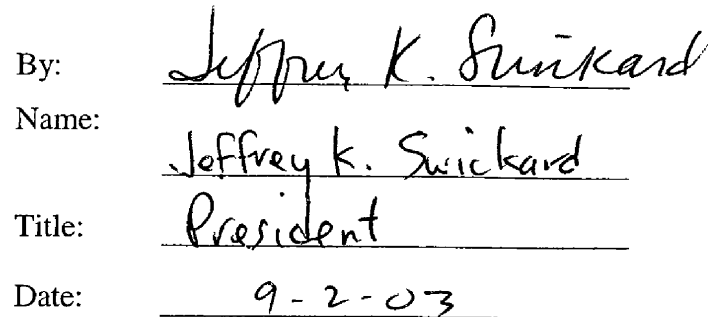 By: Jeffrey K. Swickard
Name: Jeffrey K. Swickard
Title: President
Date: 9-2-03